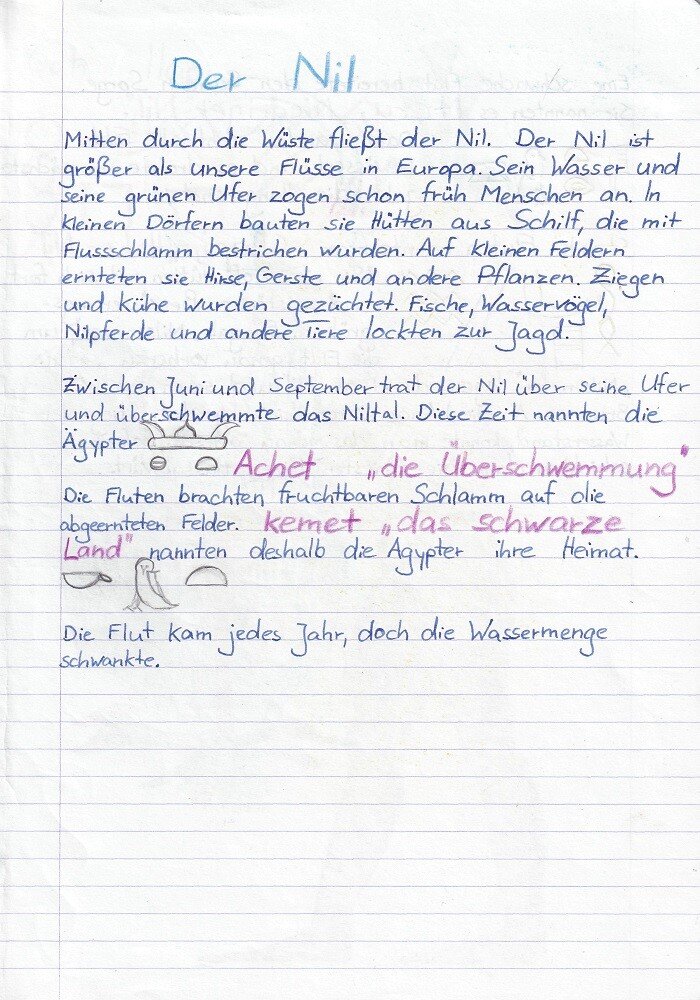 Der Nil
Mitten durch die Wüste fließt der Nil. Der Nil ist
größer als unsere Flüsse in Europa. Sein Wasser und
seine grünen Ufer zogen schon früh Menschen an. In
kleinen Dörfern bauten sie Hütten aus Schilf, die mit
Flussschlamm bestrichen wurden. Auf kleinen Feldern
ernteten sie Hirse, Gerste und andere Pflanzen. Ziegen
und Kühe wurden gezüchtet. Fische, Wasservögel,
Nilpferde und andere Tiere lockten zur Jagd.
Zwischen Juni und September trat der Nil über seine Ufer
und überschwemmte das Niltal. Diese Zeit nannten die
Ägypter
Achet „die Überschwemmung"
Die Fluten brachten fruchtbaren Schlamm auf die
abgeernteten Felder. kemet „das schwarze
Land" nannten deshalb die Ägypter ihre Heimat.
Die Flut kam jedes Jahr, doch die Wassermenge
schwankte.